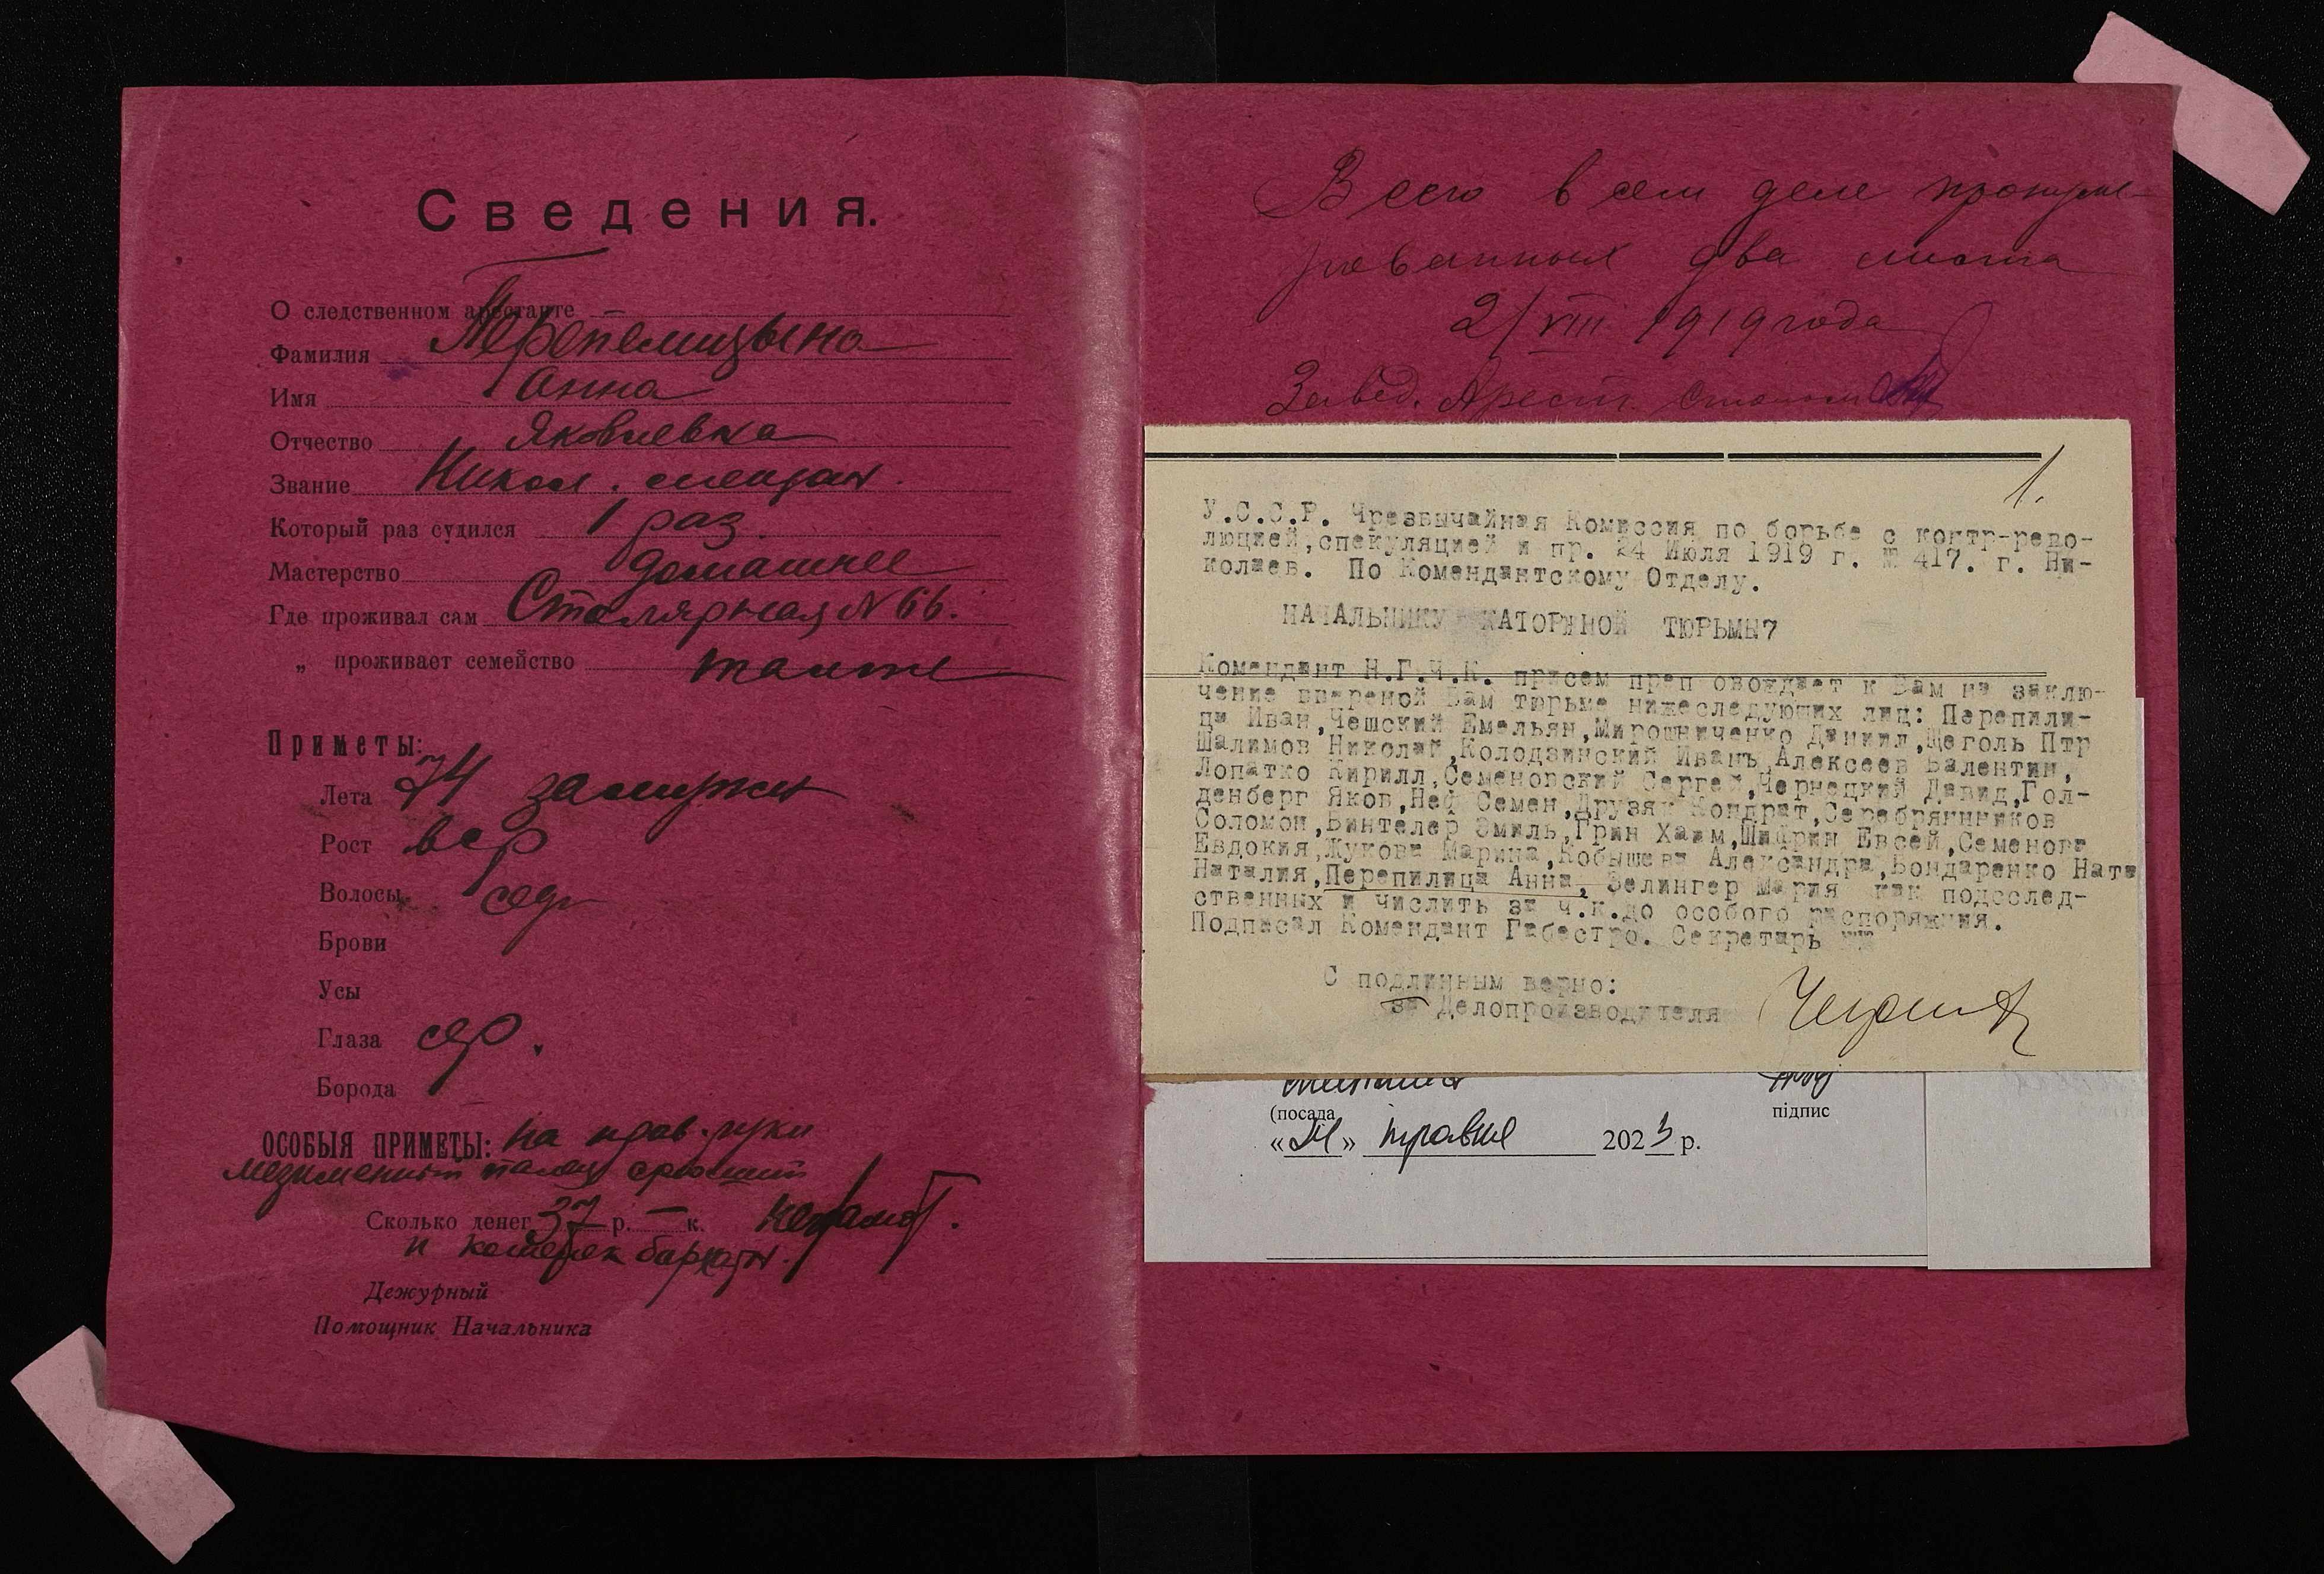 Сведения.
О следственном арестанте
Фамилия Перепелицына
Имя Анна
Отчество Яковлевна
Звание Никол. мещан.
Который раз судился 1 раз.
Мастерство домашнее
Где проживал сам Столярная № 66.
„ проживает семейство также
Приметы:
Лета 74 замужн
Рост вср
Волосы сед
Брови
Усы
Глаза сер.
Борода
ОСОБЫЯ ПРИМЕТЫ: на прав. руки
палец
Сколько денег 37 р. — к. неграмот.
и кошелек
Дежурный
Помощник Начальника
Всего в сем деле пронуме-
рованных два листа
2/VIII 1919 года
Завед. Арест. столом
1.
У.С.С.Р. Чрезвычайная Комиссия по борьбе с контр-рево-
люцией,спекуляцией и пр. 24 Июля 1919 г. № 417. г. Ни-
колаев. По Комендантскому Отделу.
НАЧАЛЬНИКУ КАТОРЖНОЙ ТЮРЬМЫ7
Комендант Н.Г.Ч.К. присем преп овождает к Вам на заклю-
чение ввереной Вам тюрьме нижеследующих лиц: Перепили-
ца Иван,Чешский Емельян,Мирошниченко Даниил,Щеголь Птр
Шалимов Николай,Колодзинский Иванъ,Алексеев Валентин,
Лопатко Кирилл,Семеновский Сергей,Чернецкий Давид,Гол-
денберг Яков,Неф Семен,Друзяк Кондрат,Серебрянников
Соломон,Винтелер Эмиль,Грин Хаим,Шифрин Евсей,Семенова
Евдокия,Жукова Марина,Кобышева Александра,Бондаренко Ната
Наталия,Перепилица Анна, Зелингер Мария как подослед-
ственных и числить за ч.к.до особого распоряжния.
Подписал Комендант Габестро. Секретарь
С подлинным верно:
за Делопроизводителя
(посада
підпис
«24» травня 2023 р.